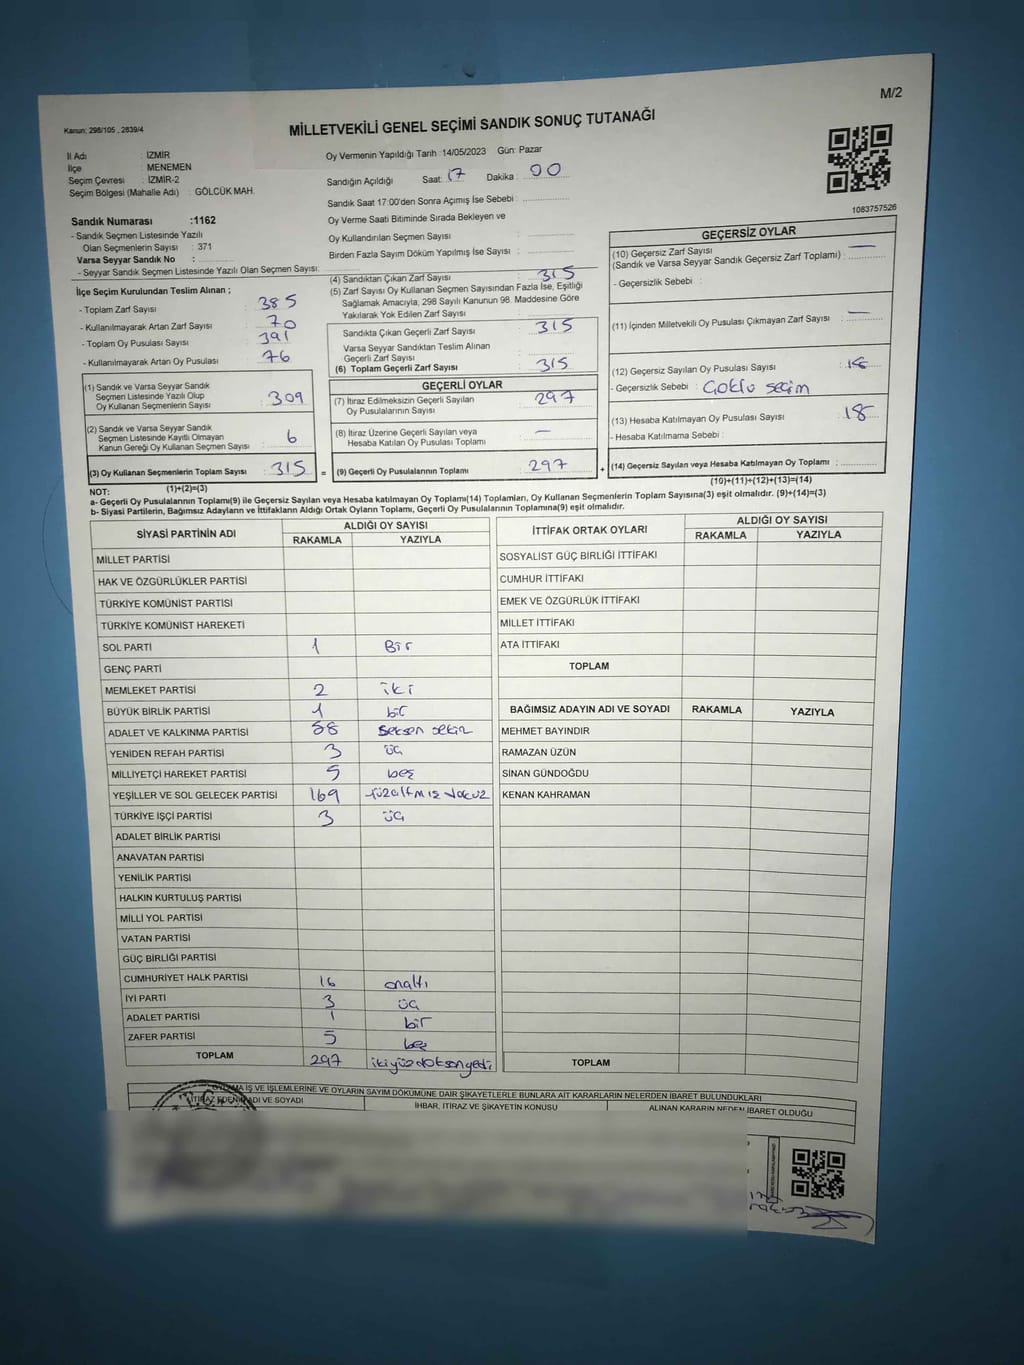 M/2
Kanun: 298/105 , 2839/4
MİLLETVEKİLİ GENEL SEÇİMİ SANDIK SONUÇ TUTANAĞI
İl Adı : İZMİR
İlçe : MENEMEN
Seçim Çevresi : İZMİR-2
Seçim Bölgesi (Mahalle Adı) : GÖLCÜK MAH.
Sandık Numarası :1162
- Sandık Seçmen Listesinde Yazılı
Olan Seçmenlerin Sayısı : 371
Varsa Seyyar Sandık No :
- Seyyar Sandık Seçmen Listesinde Yazılı Olan Seçmen Sayısı:
İlçe Seçim Kurulundan Teslim Alınan ;
- Toplam Zarf Sayısı : 385
- Kullanılmayarak Artan Zarf Sayısı : 70
- Toplam Oy Pusulası Sayısı : 391
- Kullanılmayarak Artan Oy Pusulası : 76
(1) Sandık ve Varsa Seyyar Sandık
Seçmen Listesinde Yazılı Olup
Oy Kullanan Seçmenlerin Sayısı : 309
(2) Sandık ve Varsa Seyyar Sandık
Seçmen Listesinde Kayıtlı Olmayan
Kanun Gereği Oy Kullanan Seçmen Sayısı : 6
(3) Oy Kullanan Seçmenlerin Toplam Sayısı : 315 =
(1)+(2)=(3)
Oy Vermenin Yapıldığı Tarih :14/05/2023 Gün: Pazar
Sandığın Açıldığı Saat: 17 Dakika : 00
Sandık Saat 17:00'den Sonra Açımış İse Sebebi :
Oy Verme Saati Bitiminde Sırada Bekleyen ve
Oy Kullandırılan Seçmen Sayısı :
Birden Fazla Sayım Döküm Yapılmış İse Sayısı :
(4) Sandıktan Çıkan Zarf Sayısı : 315
(5) Zarf Sayısı Oy Kullanan Seçmen Sayısından Fazla İse, Eşitliği
Sağlamak Amacıyla; 298 Sayılı Kanunun 98. Maddesine Göre
Yakılarak Yok Edilen Zarf Sayısı :
Sandıkta Çıkan Geçerli Zarf Sayısı : 315
Varsa Seyyar Sandıktan Teslim Alınan
Geçerli Zarf Sayısı :
(6) Toplam Geçerli Zarf Sayısı : 315
GEÇERLİ OYLAR
(7) İtiraz Edilmeksizin Geçerli Sayılan
Oy Pusulalarının Sayısı : 297
(8) İtiraz Üzerine Geçerli Sayılan veya
Hesaba Katılan Oy Pusulası Toplamı : —
(9) Geçerli Oy Pusulalarının Toplamı : 297 +
1083757526
GEÇERSİZ OYLAR
(10) Geçersiz Zarf Sayısı : —
(Sandık ve Varsa Seyyar Sandık Geçersiz Zarf Toplamı)
- Geçersizlik Sebebi :
(11) İçinden Milletvekili Oy Pusulası Çıkmayan Zarf Sayısı : —
(12) Geçersiz Sayılan Oy Pusulası Sayısı :
- Geçersizlik Sebebi : Çoklu seçim
(13) Hesaba Katılmayan Oy Pusulası Sayısı : 18
- Hesaba Katılmama Sebebi :
(14) Geçersiz Sayılan veya Hesaba Katılmayan Oy Toplamı :
(10)+(11)+(12)+(13)=(14)
NOT:
a- Geçerli Oy Pusulalarının Toplamı(9) ile Geçersiz Sayılan veya Hesaba katılmayan Oy Toplamı(14) Toplamları, Oy Kullanan Seçmenlerin Toplam Sayısına(3) eşit olmalıdır. (9)+(14)=(3)
b- Siyasi Partilerin, Bağımsız Adayların ve İttifakların Aldığı Ortak Oyların Toplamı, Geçerli Oy Pusulalarının Toplamına(9) eşit olmalıdır.
SİYASİ PARTİNİN ADI ALDIĞI OY SAYISI
RAKAMLA YAZIYLA
MİLLET PARTİSİ
HAK VE ÖZGÜRLÜKLER PARTİSİ
TÜRKİYE KOMÜNİST PARTİSİ
TÜRKİYE KOMÜNİST HAREKETİ
SOL PARTİ 1 Bir
GENÇ PARTİ
MEMLEKET PARTİSİ 2 iki
BÜYÜK BİRLİK PARTİSİ 1 bir
ADALET VE KALKINMA PARTİSİ 88 seksen sekiz
YENİDEN REFAH PARTİSİ 3 üç
MİLLİYETÇİ HAREKET PARTİSİ 5 beş
YEŞİLLER VE SOL GELECEK PARTİSİ 169 yüzaltmış dokuz
TÜRKİYE İŞÇİ PARTİSİ 3 üç
ADALET BİRLİK PARTİSİ
ANAVATAN PARTİSİ
YENİLİK PARTİSİ
HALKIN KURTULUŞ PARTİSİ
MİLLİ YOL PARTİSİ
VATAN PARTİSİ
GÜÇ BİRLİĞİ PARTİSİ
CUMHURİYET HALK PARTİSİ 16 onaltı
İYİ PARTİ 3 üç
ADALET PARTİSİ 1 bir
ZAFER PARTİSİ 5 beş
TOPLAM 297 ikiyüzdoksanyedi
İTTİFAK ORTAK OYLARI ALDIĞI OY SAYISI
RAKAMLA YAZIYLA
SOSYALİST GÜÇ BİRLİĞİ İTTİFAKI
CUMHUR İTTİFAKI
EMEK VE ÖZGÜRLÜK İTTİFAKI
MİLLET İTTİFAKI
ATA İTTİFAKI
TOPLAM
BAĞIMSIZ ADAYIN ADI VE SOYADI RAKAMLA YAZIYLA
MEHMET BAYINDIR
RAMAZAN ÜZÜN
SİNAN GÜNDOĞDU
KENAN KAHRAMAN
TOPLAM
İŞ VE İŞLEMLERİNE VE OYLARIN SAYIM DÖKÜMÜNE DAİR ŞİKAYETLERLE BUNLARA AİT KARARLARIN NELERDEN İBARET BULUNDUKLARI
İTİRAZ EDENİN ADI VE SOYADI İHBAR, İTİRAZ VE ŞİKAYETİN KONUSU ALINAN KARARIN NEDEN İBARET OLDUĞU